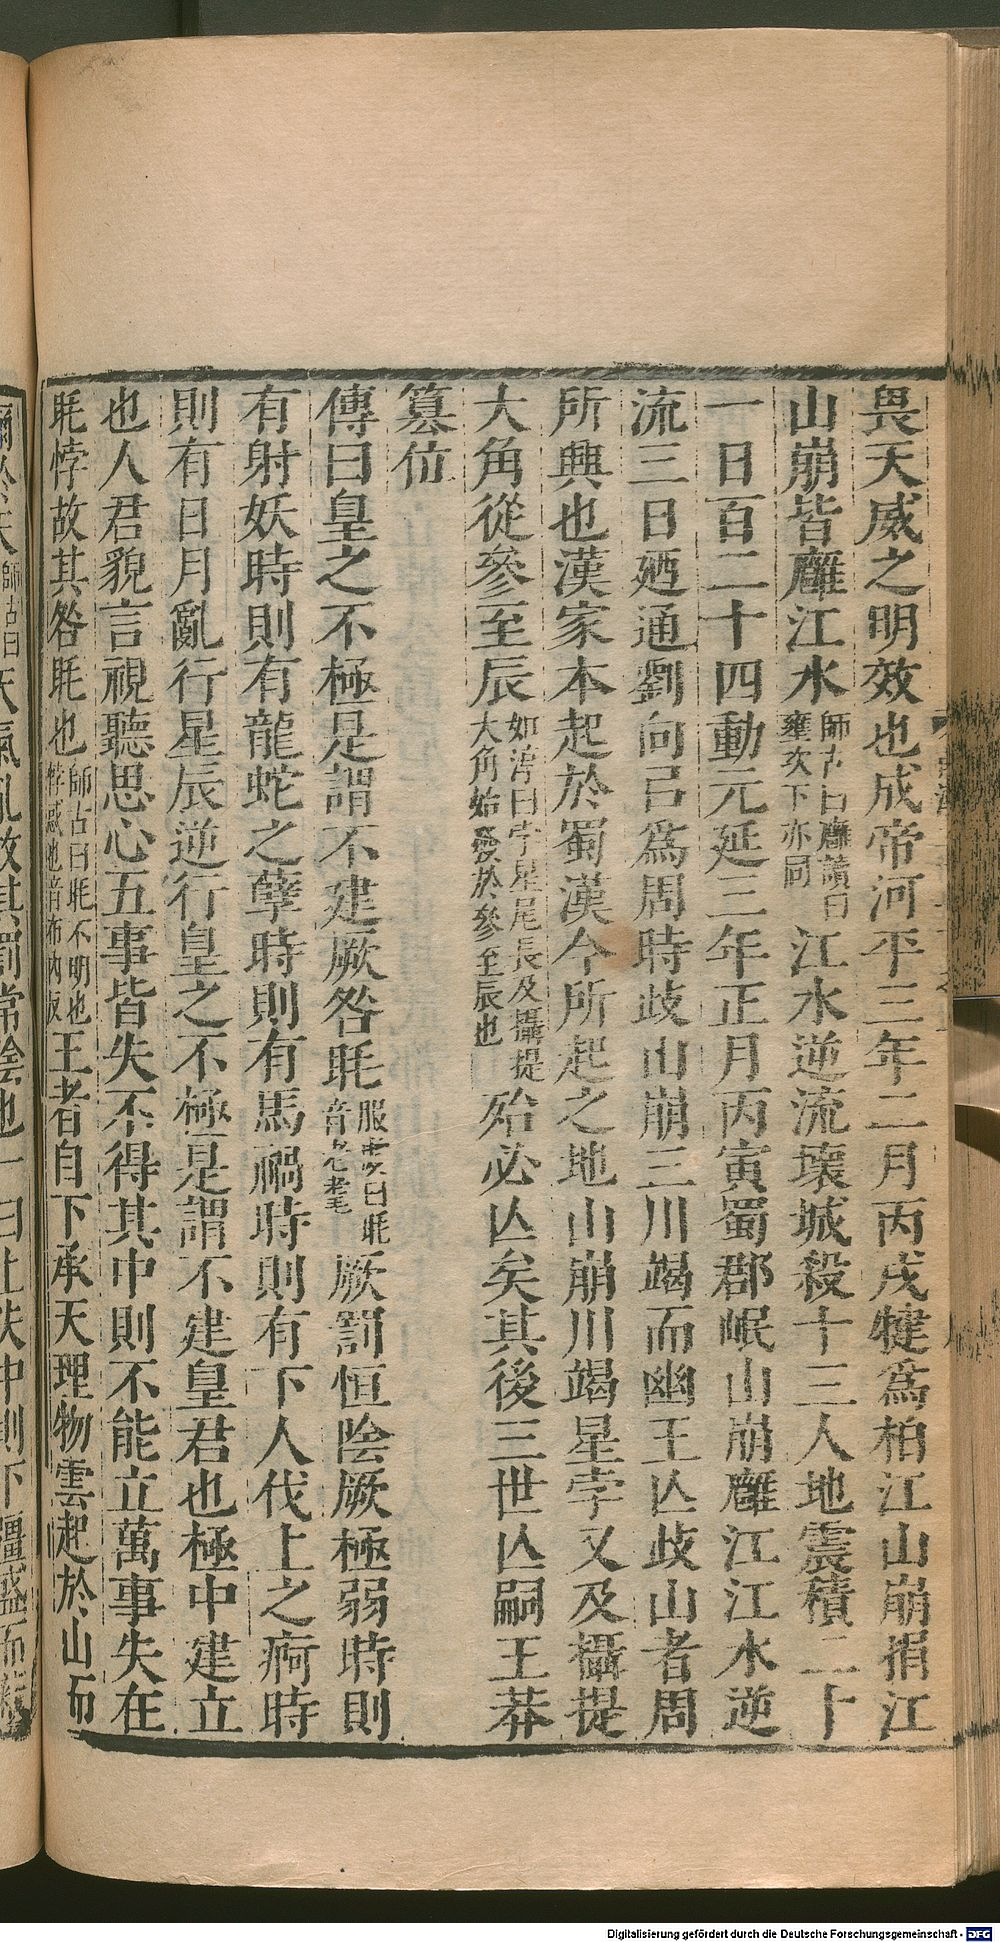 畏天威之明效也成帝河平三年二月丙戌犍爲柏江山崩捐江
山崩皆廱江水師古曰廱讀曰壅次下亦同江水逆流壞城殺十三人地震積二十
一日百二十四動元延三年正月丙寅蜀郡岷山崩廱江江水逆
流三日廼通劉向㠯爲周時歧山崩三川竭而幽王亾歧山者周
所興也漢家本起於蜀漢今所起之地山崩川竭星孛又及攝提
大角從參至辰如淳曰孛星尾長及攝提大角始發於參至辰也殆必亾矣其後三世亾嗣王莽
篡位
傳曰皇之不極是謂不建厥咎眊服虔曰眊音老耄厥罰恒陰厥極弱時則
有射妖時則有龍蛇之孽時則有馬禍時則有下人伐上之痾時
則有日月亂行星辰逆行皇之不極是謂不建皇君也極中建立
也人君貌言視聽思心五事皆失不得其中則不能立萬事失在
眊悖故其咎眊也師古曰眊不明也悖惑也音布內反王者自下承天理物雲起於山而
爾於天師古曰天氣亂故其罰常陰也一曰上失中則下彊盛而
Digitalisierung gefördert durch die Deutsche Forschungsgemeinschaft - DFG